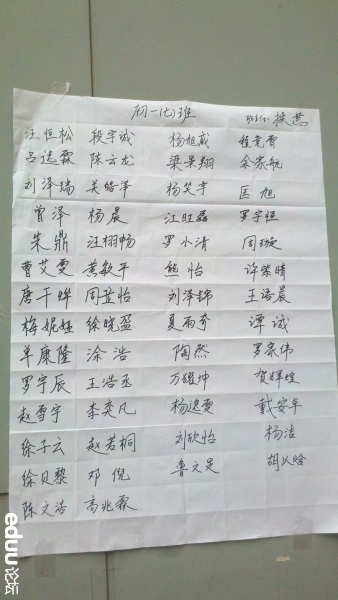 初一(七)班 班主任 操芸
汪恒松 段宇诚 杨旭威 程竞霄
吕述霖 陈云龙 梁景翔 余家航
刘泽瑞 关皓泽 杨笑宇 匡旭
曾泽 杨晨 江旺磊 罗宇恒
朱鼎 汪栩畅 罗小清 周璇
曹艾雯 黄敏平 熊怡 许崇晴
唐干烨 周昱怡 刘泽锦 王浯晨
梅妮娅 徐晓盈 夏雨奇 谭诚
单康隆 涂浩 陶然 罗家伟
罗宇辰 王浩丞 万耀坤 贺辉煌
赵雪宇 李奕凡 杨逸雯 戴安年
徐子云 赵若桐 刘欣怡 杨洁
徐贝黎 邓倪 鲁文昊
陈文浩 高兆霖
eduu论坛